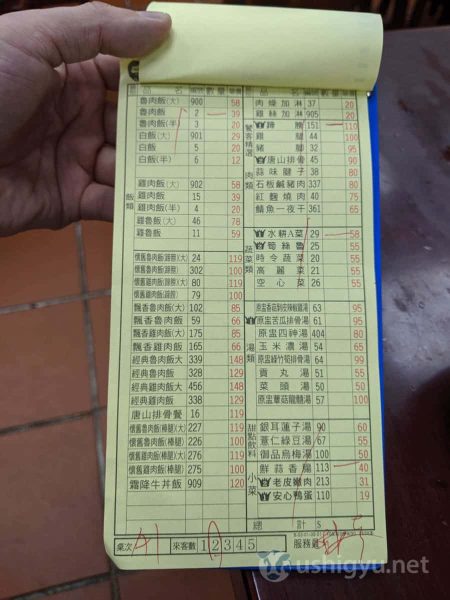 品名 編號 數量 單價
魯肉飯(大) 900 58
魯肉飯 2 39
魯肉飯(半) 3 20
白飯(大) 901 29
白飯 5 20
白飯(半) 6 12
飯類
雞肉飯(大) 902 58
雞肉飯 15 39
雞肉飯(半) 4 20
雞魯飯(大) 46 78
雞魯飯 11 59
119
懷舊魯肉飯 302 100
119
100
飄香魯肉飯(大) 102 85
飄香魯肉飯 59 66
飄香雞肉飯(大) 175 85
飄香雞肉飯 165 66
經典魯肉飯大 339 148
經典魯肉飯 328 129
經典雞肉飯大 458 148
經典雞肉飯 338 129
唐山排骨餐 16 119
懷舊魯肉飯(棒腿)大 227 119
懷舊魯肉飯(棒腿) 226 100
懷舊雞肉飯(棒腿)大 276 119
懷舊雞肉飯(棒腿) 275 100
霜降牛丼飯 909 120
桌次 41 來客數 1 2 3 4 5
肉燥加淋 37 20
雞絲加淋 905 20
饕客精選 肉類
蹄膀 151 110
雞腿 44 100
豬腳 32 95
唐山排骨 45 90
蒜味腱子 38 80
石板鹹豬肉 337 80
紅麴燒肉 40 75
鯖魚一夜干 361 65
蔬菜類
水耕A菜 29 58
筍絲魯 25 55
時令蔬菜 20 55
高麗菜 21 55
空心菜 26 55
湯類
63 95
原盅苦瓜排骨湯 61 95
原盅四神湯 404 80
玉米濃湯 54 65
原盅綠竹筍排骨湯 64 100
貢丸湯 51 55
菜頭湯 50 50
57 100
甜點飲料
銀耳蓮子湯 90 60
薏仁綠豆湯 67 55
御品烏梅湯 100 50
小菜
鮮蒜香腸 113 40
老皮嫩肉 213 31
安心鴨蛋 110 19
總計 $
服務員
ushigyu.net